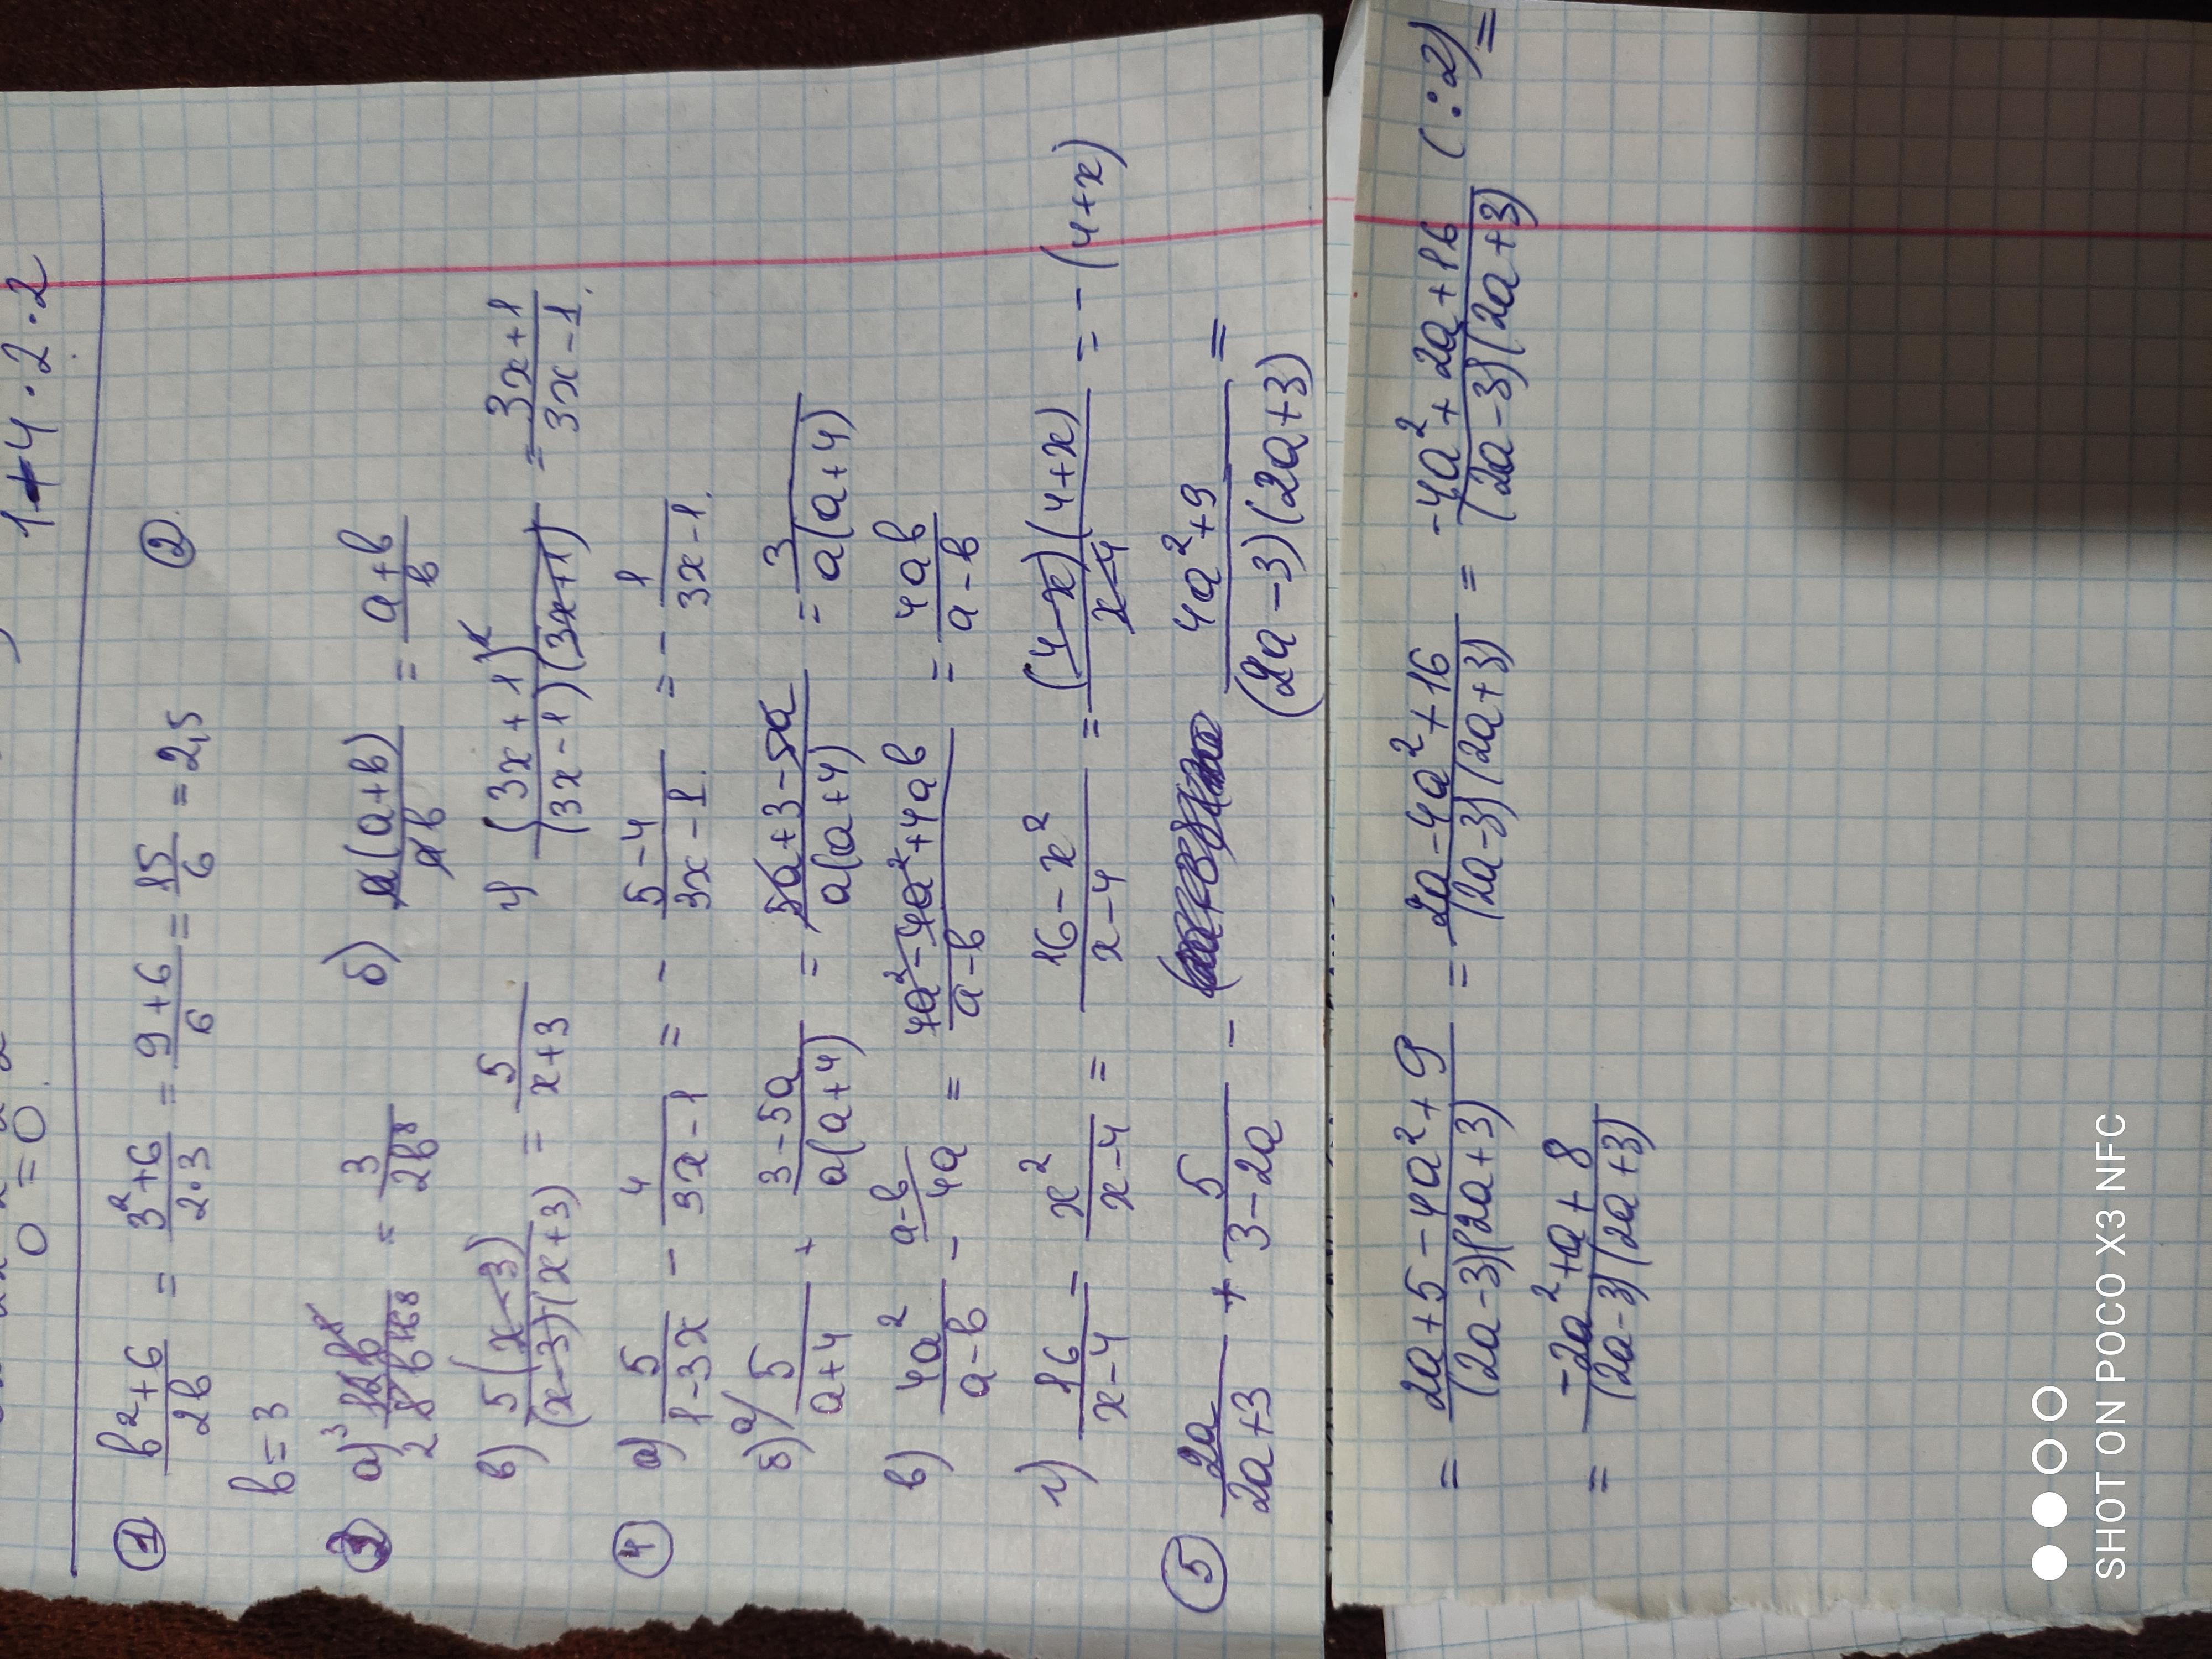 1+4·2·2
0=0.
① (b²+6)/(2b) = (3²+6)/(2·3) = (9+6)/6 = 15/6 = 2,5 ②
b=3
③ а) = 3/(2b⁸) б) a(a+b)/(ab) = (a+b)/b
в) 5(x-3)/((x-3)(x+3)) = 5/(x+3) г) (3x+1)²/((3x-1)(3x+1)) = (3x+1)/(3x-1).
④ а) 5/(1-3x) - 4/(3x-1) = - (5-4)/(3x-1) = - 1/(3x-1).
б) a/ 5/(a+4) + (3-5a)/(a(a+4)) = (5a+3-5a)/(a(a+4)) = 3/(a(a+4))
в) 4a²/(a-b) - a-b/ 4a = (4a²-4a²+4ab)/(a-b) = 4ab/(a-b)
г) 16/(x-4) - x²/(x-4) = (16-x²)/(x-4) = (4-x)(4+x)/(x-4) = -(4+x)
⑤ 2a/(2a+3) + 5/(3-2a) - (4a²+9)/((2a-3)(2a+3)) =
= (2a+5-4a²+9)/((2a-3)(2a+3)) = (2a-4a²+16)/((2a-3)(2a+3)) = (-4a²+2a+16)/((2a-3)(2a+3)) (:2) =
= (-2a²+a+8)/((2a-3)(2a+3))
SHOT ON POCO X3 NFC